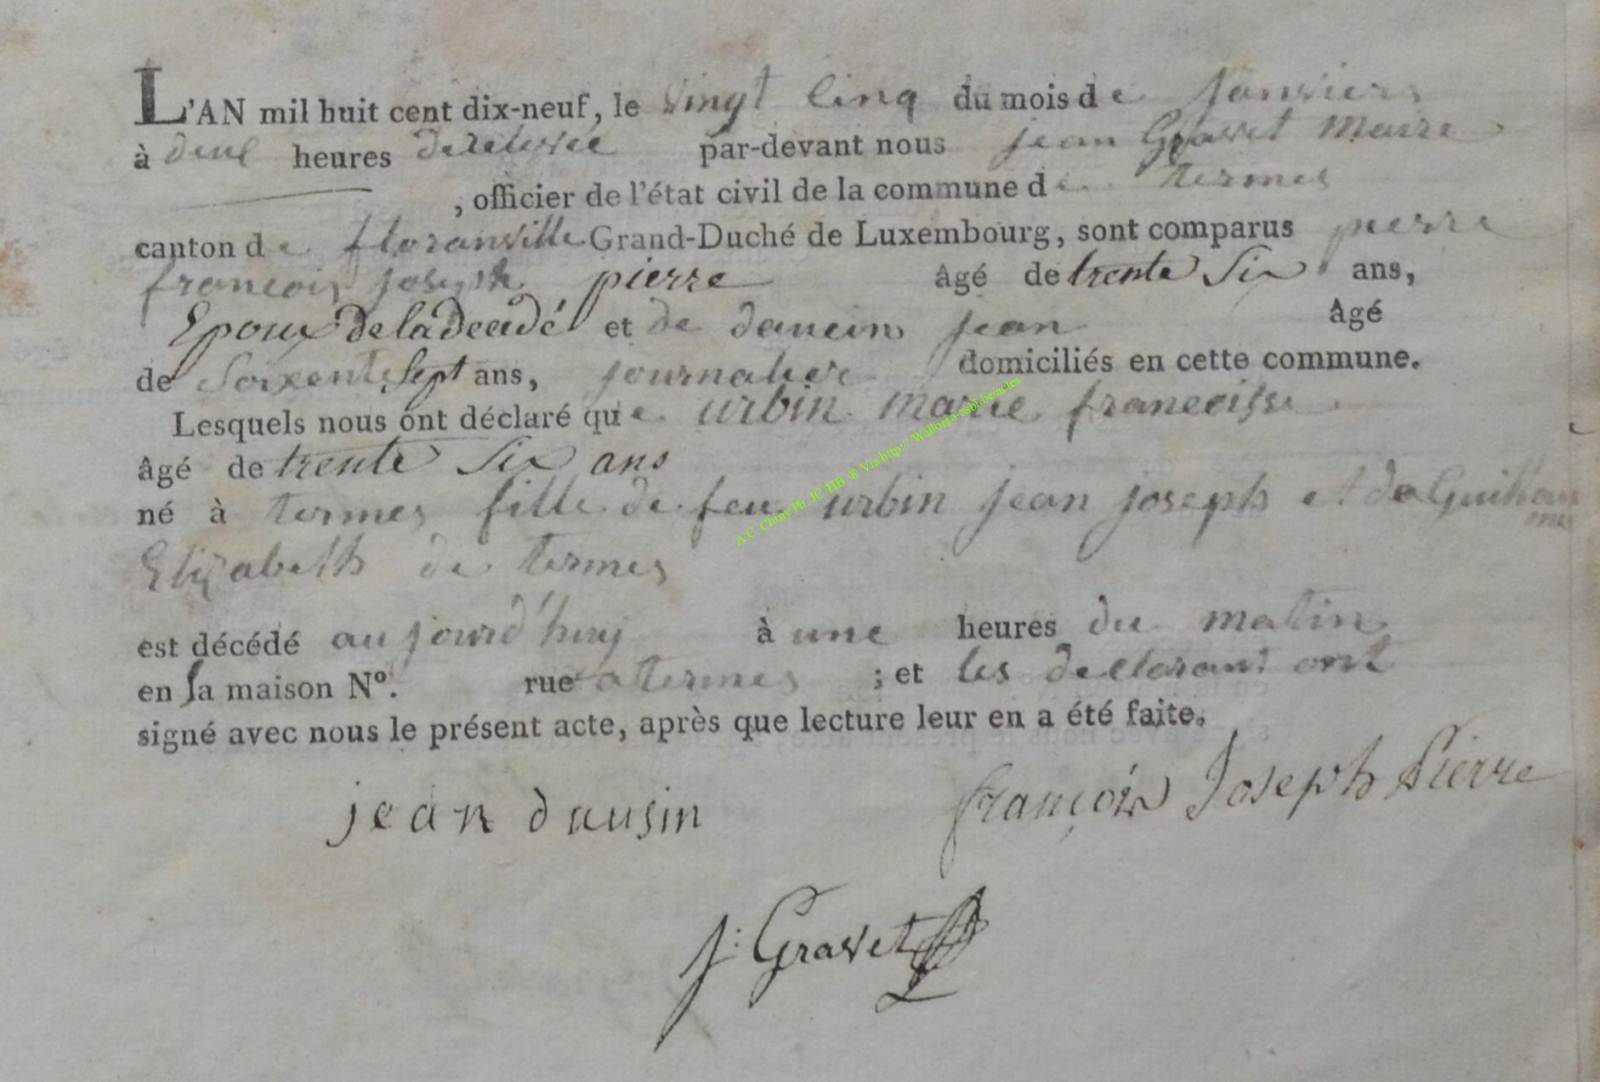 L'AN mil huit cent dix-neuf, le vingt cinq du mois de Janvier
à deux heures de relevée par-devant nous jean Gravet Maire
, officier de l'état civil de la commune de termes
canton de floranville Grand-Duché de Luxembourg, sont comparus pierre
francois joseph pierre âgé de trente Six ans,
Epoux de la decedé et de dausin jean âgé
de Soixente Sept ans, journalier domiciliés en cette commune.
Lesquels nous ont déclaré que urbin marie francoisse
âgé de trente Six ans
né à termes fille de feu urbin jean joseph et de
Elizabeth de termes
est décédé aujourd'huy à une heures du matin
en sa maison Nº. rue a termes ; et les declarant ont
signé avec nous le présent acte, après que lecture leur en a été faite.
jean dausin
françois Joseph Pierre
j: Gravet